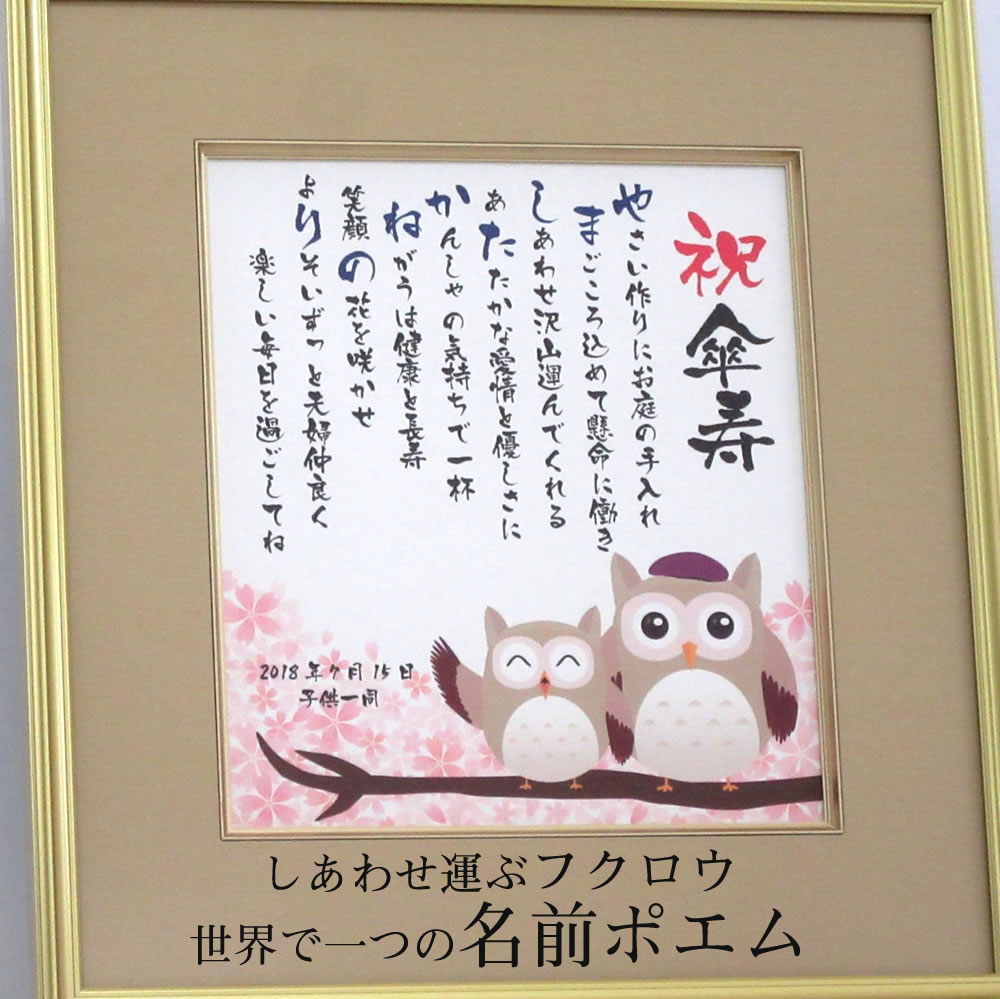 祝 傘寿
やさい作りにお庭の手入れ
まごころ込めて懸命に働き
しあわせ沢山運んでくれる
あたたかな愛情と優しさに
かんしゃの気持ちで一杯
ねがうは健康と長寿
笑顔の花を咲かせ
よりそいずっと夫婦仲良く
楽しい毎日を過ごしてね
2018年7月15日
子供一同
しあわせ運ぶフクロウ
世界で一つの名前ポエム